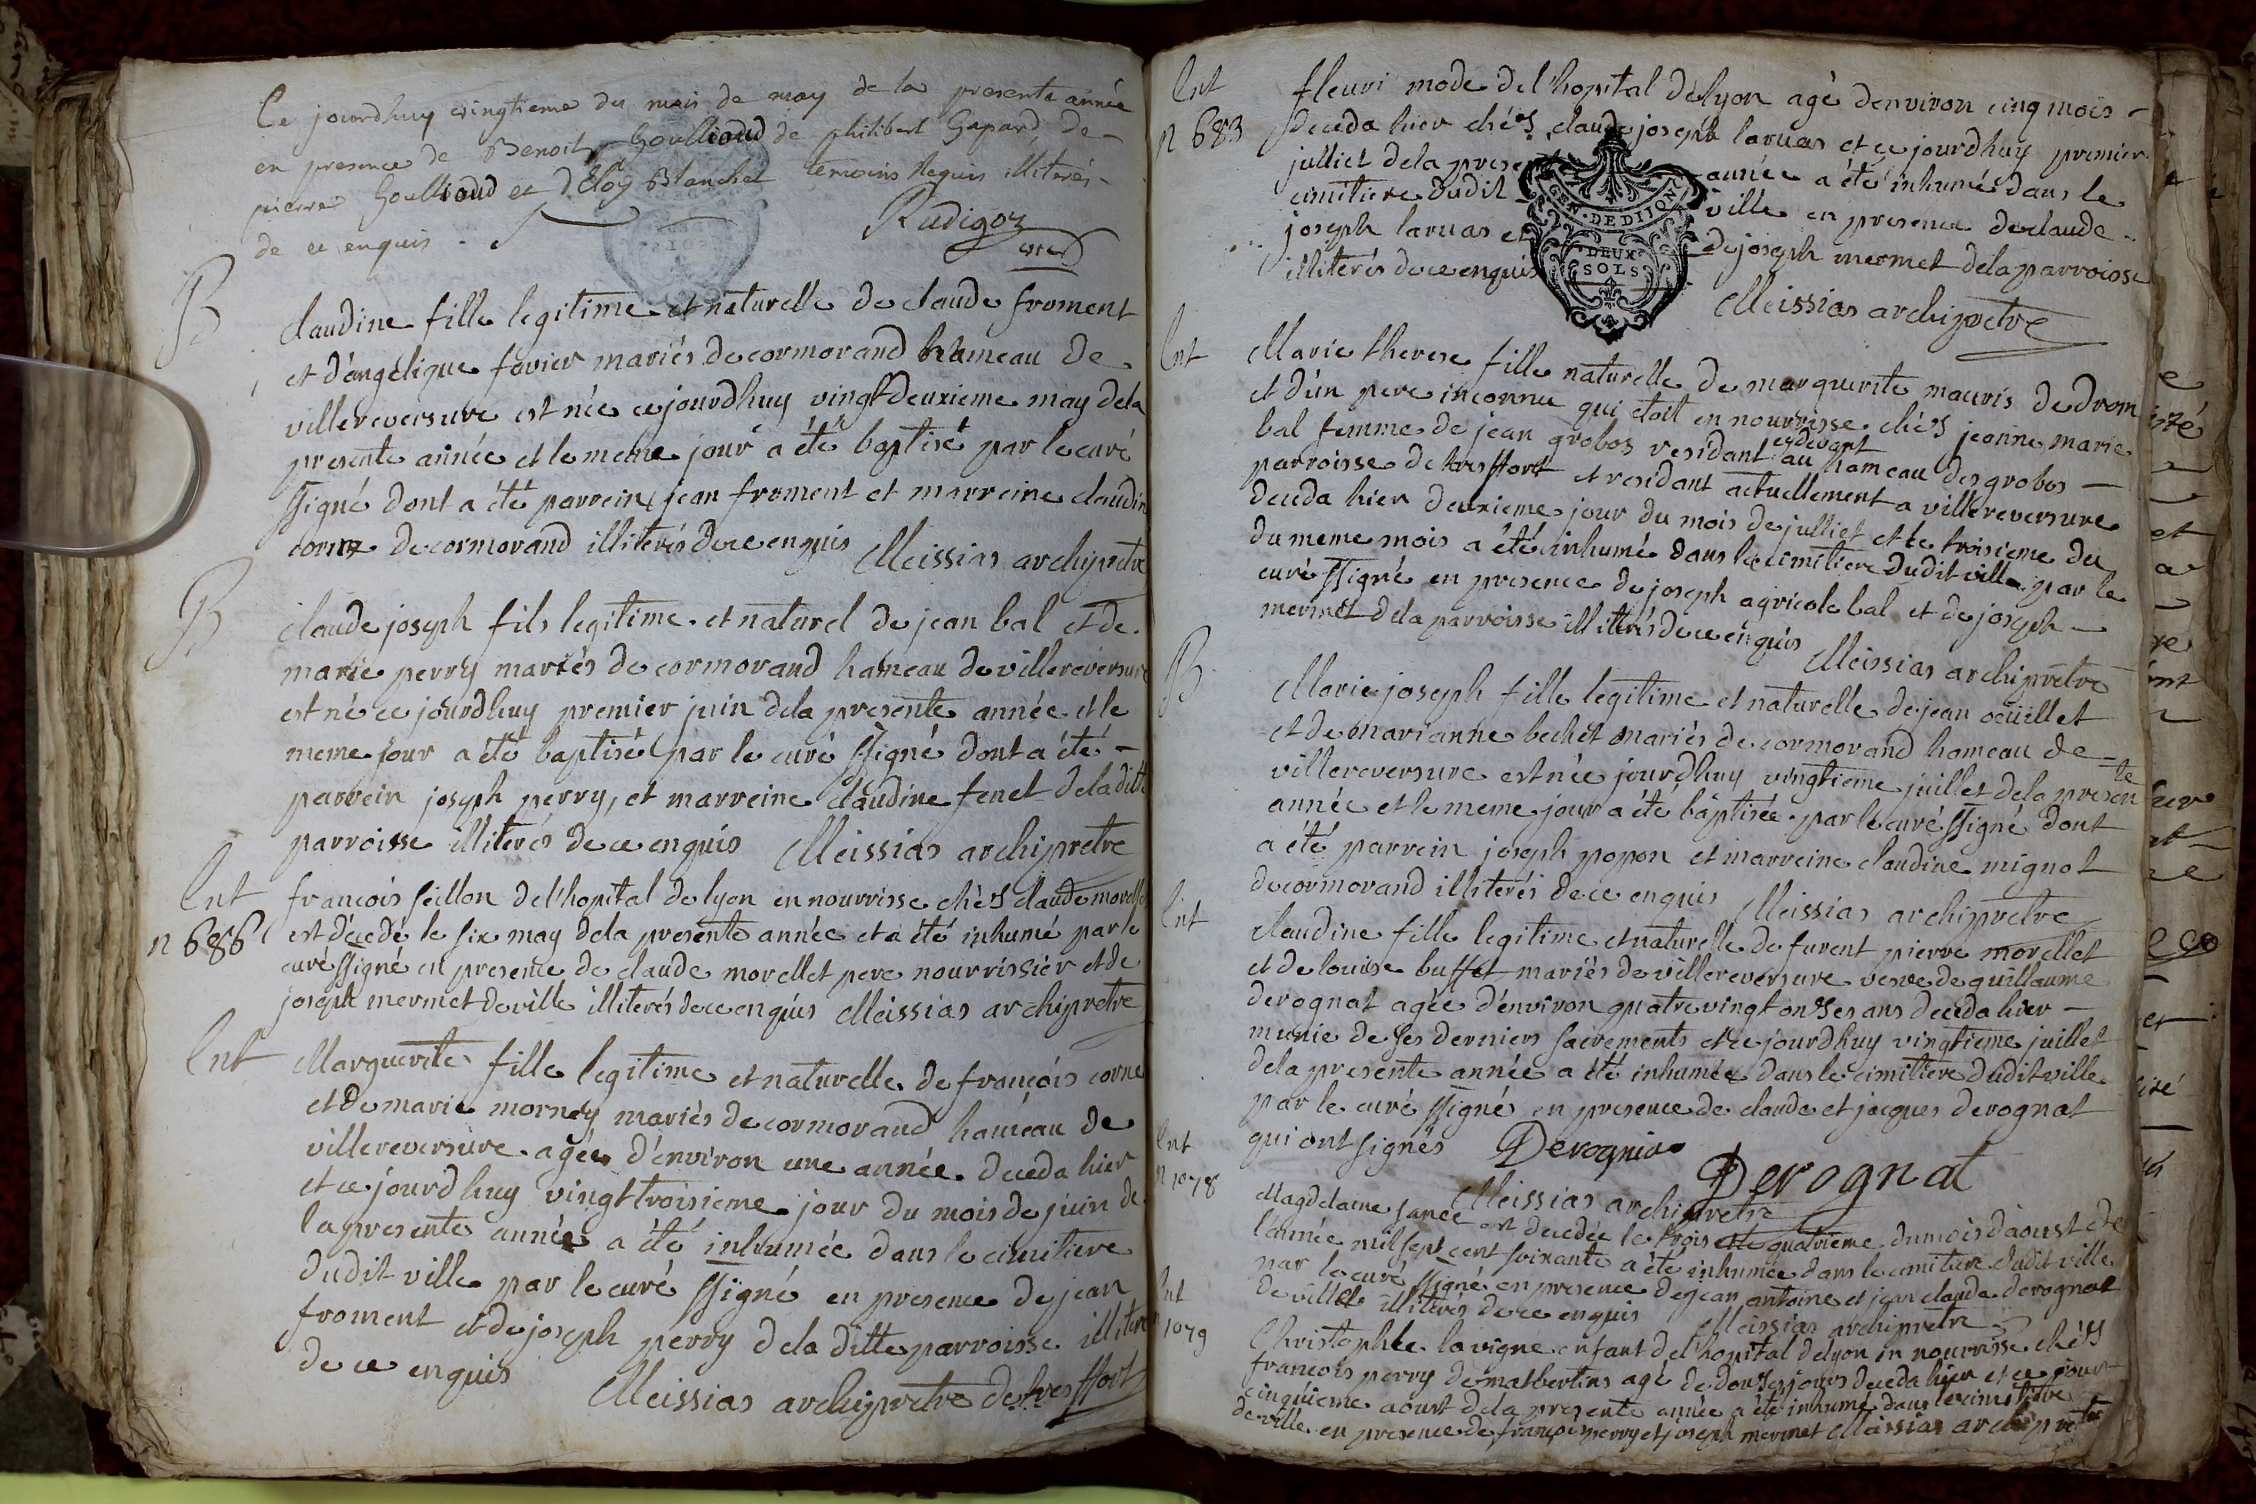 Ce jourdhuy vingtieme du mois de may de la presente année
en presence de Benoit Goullioud de philibert Gapard de
pierre Goullioud et d'Eloÿ Blanchet temoins Requis illiterés
de ce enquis. Rudigoz
curé
B
claudine fille legitime et naturelle de claude froment
et d'angelique favier mariés de cormorand hameau de
villereversure est née cejourdhuy vingtdeuxieme may dela
presente année et le meme jour a été baptisé par le curé
ssigné dont a été parrein jean froment et marreine claudin
corne de cormorand illiterés de ce enquis Meissias archipretre
B
claude joseph fils legitime et naturel de jean bal et de
marie perry mariés de cormorand hameau de villereversure
est né ce jourdhuy premier juin dela presente année et le
meme jour a été baptisé par le curé ssigné dont a été
parrein joseph perry, et marreine claudine fenet dela ditte
parroisse illiterés de ce enquis Meissias archipretre
Ent
n 686
francois seillon de l'hopital de lyon en nourrisse chés claude morellet
est décedé le six may dela presente année et a été inhumé par le
curé ssigné en presence de claude morellet pere nourrissier et de
joseph mermet de ville illiterés de ce enquis Meissias archipretre
Ent
Marguerite fille legitime et naturelle de françois corne
et de marie morney mariés de cormorand hameau de
villereversure agée d'environ une année deceda hier
et ce jourdhuy vingt troisieme jour du mois de juin de
la presente année a été inhumée dans le cimitiere
dudit ville par le curé ssigné en presence de jean
froment et de joseph perry dela ditte parroisse illiter
de ce enquis
Meissias archipretre de tressfort
Ent
n 683
fleuri mode de l'hopital de lyon agé denviron cinq mois
deceda hier chés claude joseph laruas et ce jourdhuy premier
julliet dela presente année a été inhumé dans le
cimitiere dudit ville en presence de claude
joseph laruas et de joseph mermet dela parroisse
illiterés de ce enquis
GEN. DE DIJON
DEUX
SOLS
Meissias archipretre
Ent
Marie therese fille naturelle de marguerite mauris de drom
et d'un pere inconnu qui etoit en nourrisse chés jeanne marie
bal femme de jean grobos residant cydevant au hameau des grobos
parroisse de tressfort et residant actuellement a villereversure
deceda hier deuxieme jour du mois de julliet et le troisieme du
du meme mois a été inhumé dans le cimitiere dudit ville par le
curé ssigné en presence de joseph agricole bal et de joseph
mermet dela parroisse illiterés de ce enquis
Meissias archipretre
B
Marie joseph fille legitime et naturelle de jean oeüillet
et de marianne bechet mariés de cormorand hameau de
villereversure est née jourdhuy vingtieme juillet dela presente
année et le meme jour a été baptisée par le curé ssigné dont
a été parrein joseph popon et marreine claudine mignot
de cormorand illiterés de ce enquis Meissias archipretre
Ent
claudine fille legitime et naturelle de furent pierre morellet
et de louise buffet mariés de villereversure veuve de guillaume
derognat agée d'environ quatre vingt onses ans deceda hier
munie de ses derniers sacrements et ce jourdhuy vingtieme juillet
dela presente année a été inhumée dans le cimitiere dudit ville
par le curé ssigné en presence de claude et jacques derognat
qui ont signés
Derognat
Meissias archipretre
Ent
n 1078
Magdelaine est decedée le trois et le quatrieme du mois d'aoust de
l'année mil sept cent soixante a été inhumée dans le cimitiere dudit ville
par le curé ssigné en presence de jean antoine et jean claude derognat
de ville illiterés de ce enquis Meissias archipretre
Ent
n 1079
Christophle lavigne enfant de l'hopital de lyon en nourrisse chés
francois perry de agé de douses jours deceda hier et ce jour
cinquieme aoust dela presente année a été inhumé dans le cimitiere
de ville en presence de françois perry et joseph mermet Meissias archipretre